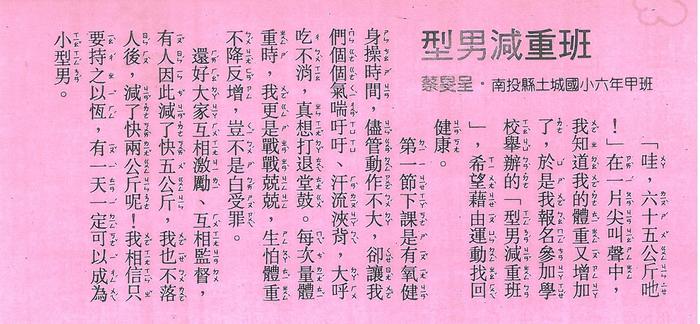 型男減重班
蔡旻呈・南投縣土城國小六年甲班
「哇，六十五公斤吔
！」在一片尖叫聲中，
我知道我的體重又增加
了，於是我報名參加學
校舉辦的「型男減重班
」，希望藉由運動找回
健康。
第一節下課是有氧健
身操時間，儘管動作不大，卻讓我
們個個氣喘吁吁、汗流浹背，大呼
吃不消，真想打退堂鼓。每次量體
重時，我更是戰戰兢兢，生怕體重
不降反增，豈不是白受罪。
還好大家互相激勵、互相監督，
有人因此減了快五公斤，我也不落
人後，減了快兩公斤呢！我相信只
要持之以恆，有一天一定可以成為
小型男。